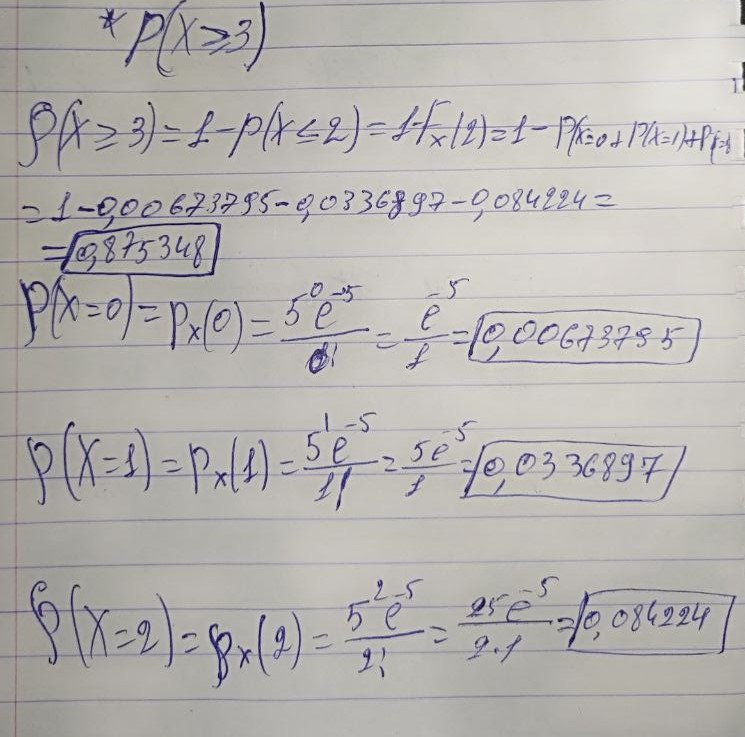 * P(X≥3)
P(X≥3)=1-P(X≤2)=1-Fx(2)=1-P(X=0+P(X=1)+P
=1-0,00673795-0,0336897-0,084224=
=0,875348
P(X=0)=Px(0)=5⁰e⁻⁵/0!=e⁻⁵/1=0,00673795
P(X=1)=Px(1)=5¹e⁻⁵/1!=5e⁻⁵/1=0,0336897
P(X=2)=Px(2)=5²e⁻⁵/2!=25e⁻⁵/2·1=0,084224